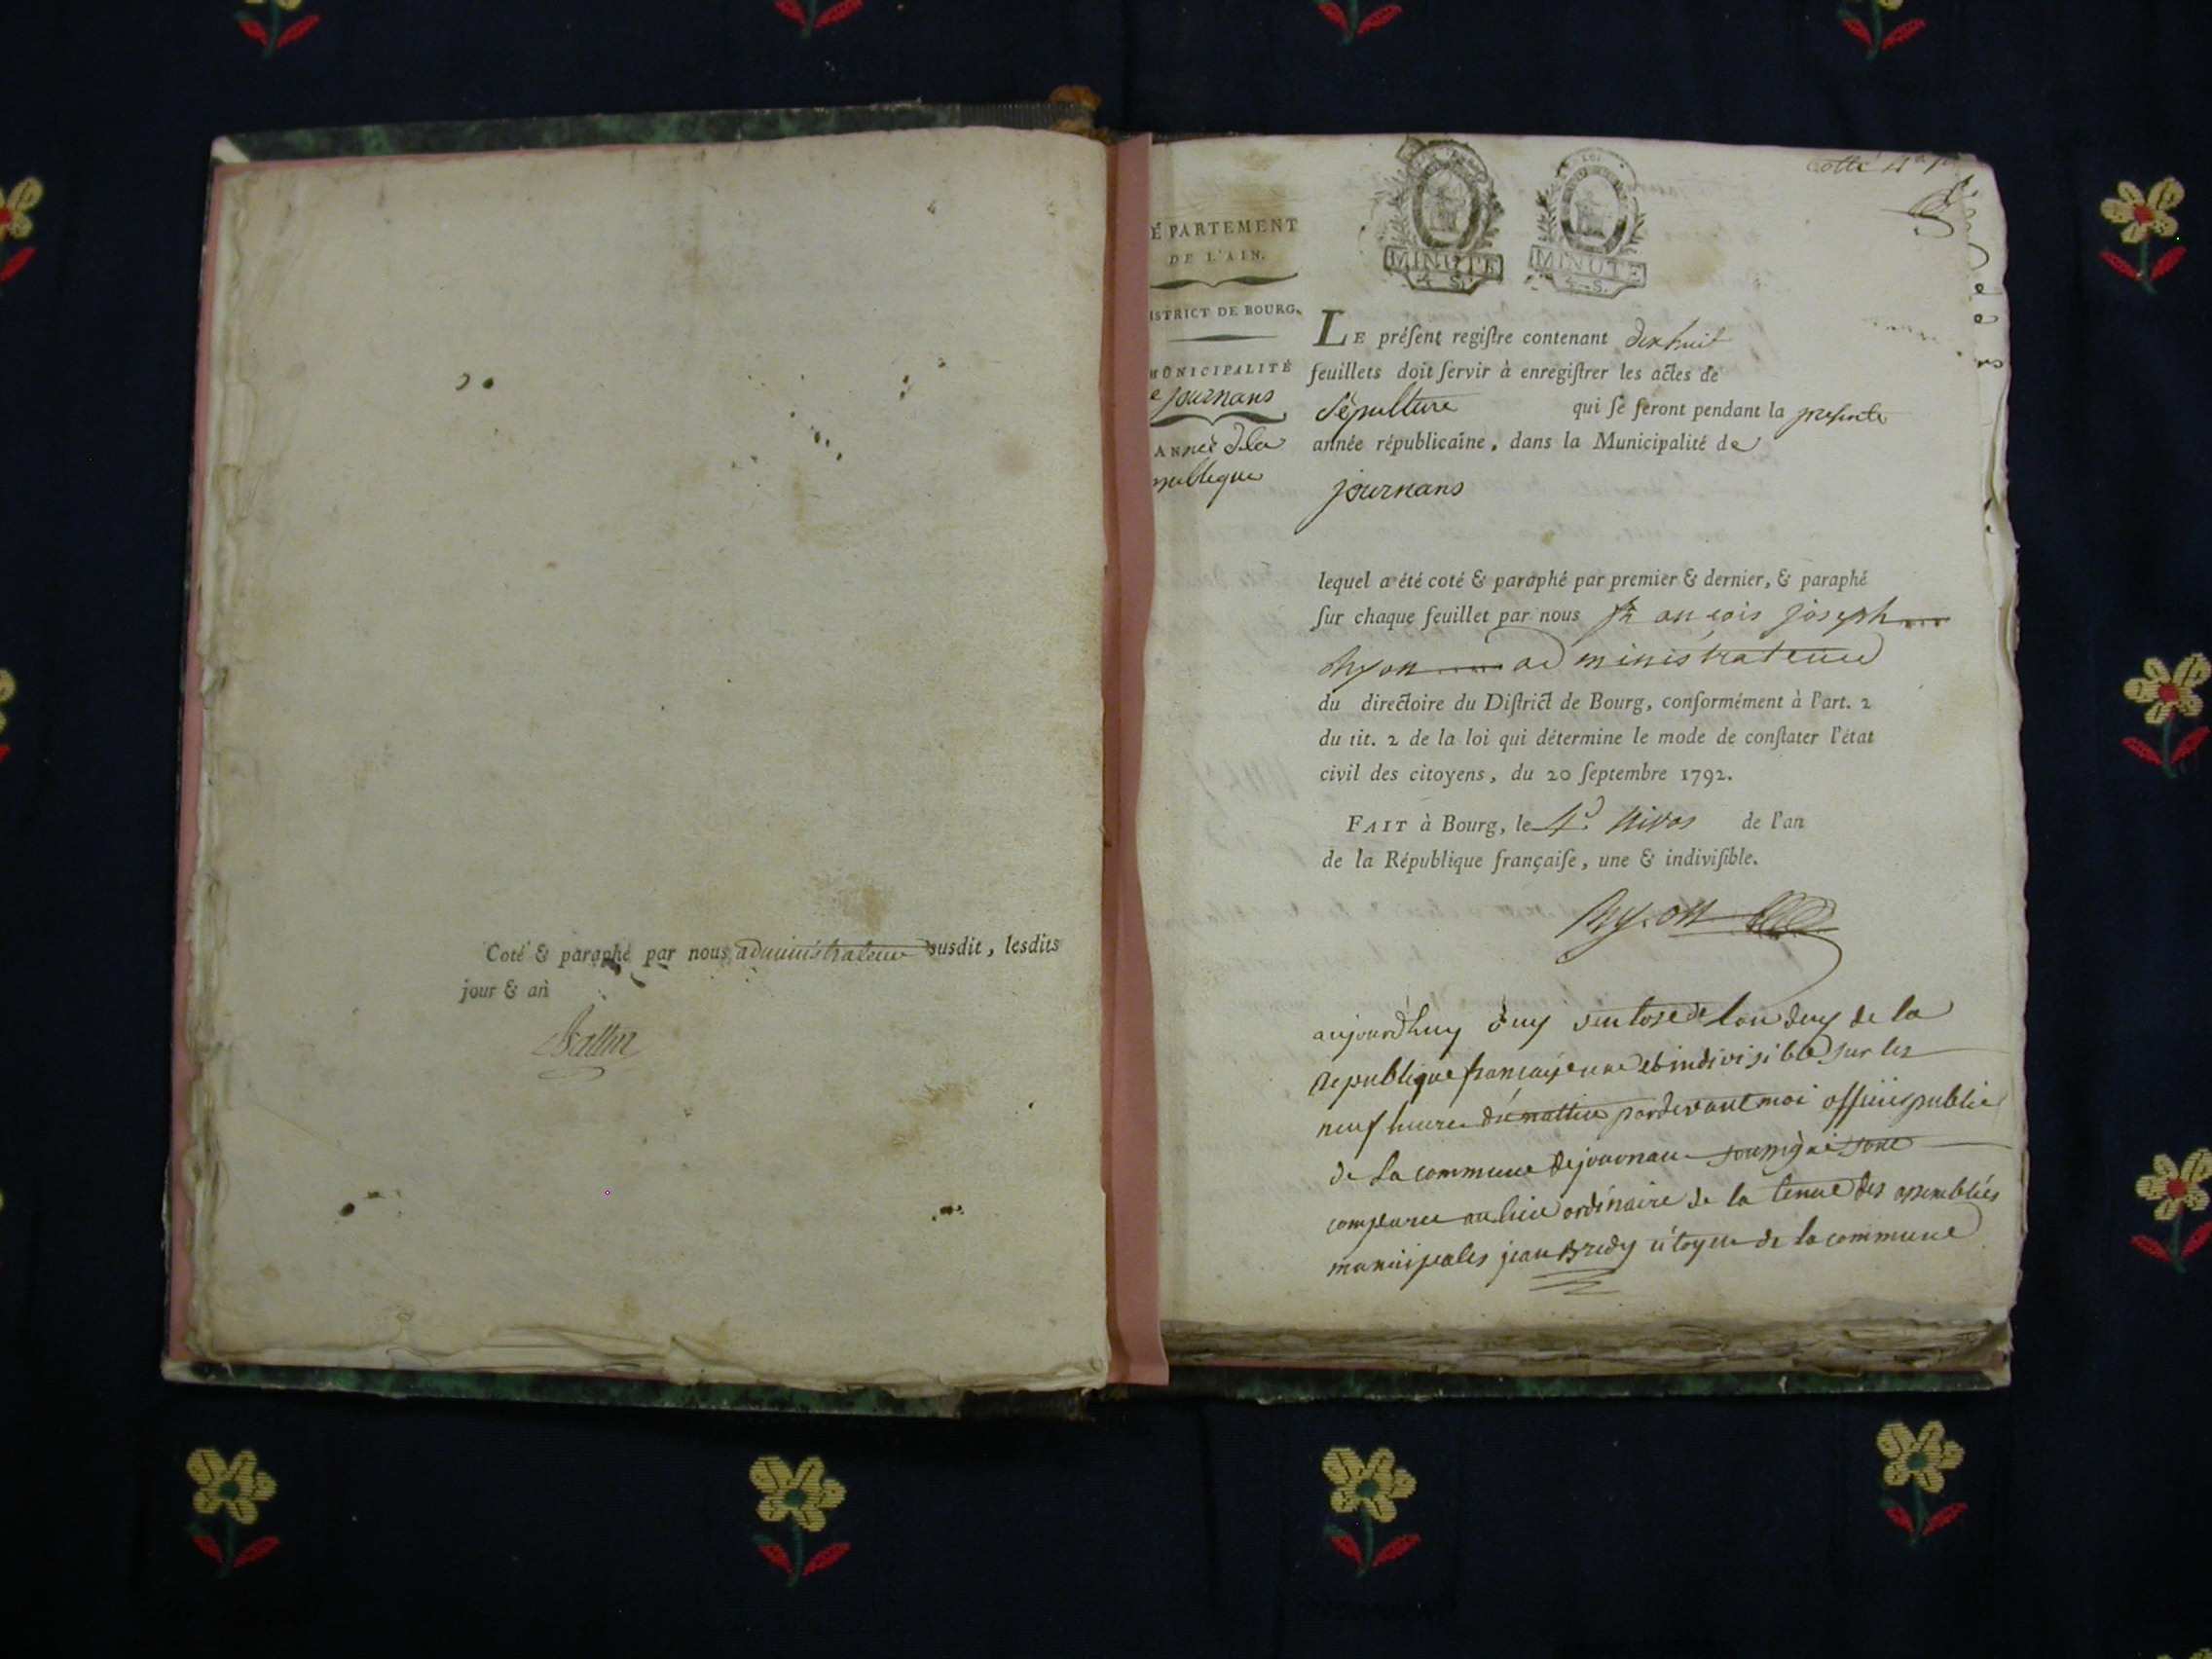 Coté & paraphé par nous administrateur susdit, lesdits
jour & an
cotté et
ÉPARTEMENT
DE L'AIN.
ISTRICT DE BOURG.
MUNICIPALITÉ
e journans
ANNÉE de la
publique
LOI
MINUTE
4 S.
MINUTE
4 S.
LE préſent regiſtre contenant dix huit
feuillets doit ſervir à enregiſtrer les actes de
sépulture qui ſe ſeront pendant la presente
année républicaine, dans la Municipalité de
journans
lequel a été coté & paraphé par premier & dernier, & paraphé
ſur chaque feuillet par nous françois joseph
administrateur
du directoire du Diſtrict de Bourg, conformément à l'art. 2
du tit. 2 de la loi qui détermine le mode de conſtater l'état
civil des citoyens, du 20 ſeptembre 1792.
FAIT à Bourg, le 4 nivos de l'an
de la République françaiſe, une & indiviſible.
aujourdhuy ventose de lan deux de la
republique française une et indivisible sur les
neuf heures du mattin pardevant moi officier public
de la commune de journans soussigné
comparu au lieu ordinaire de la tenue des assemblées
municipales jean citoyen de la commune